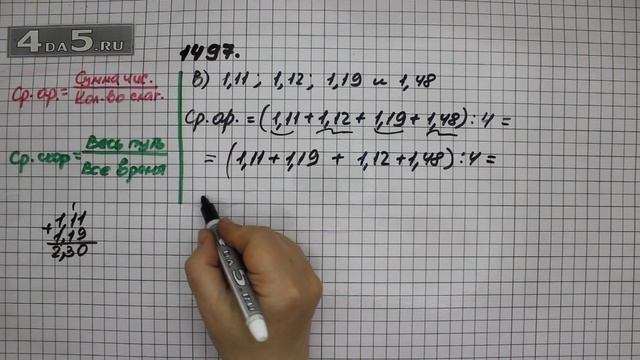 4DA5.RU
1497.
Ср. ар. = Сумма чис. / Кол-во слаг.
Ср. скор = Весь путь / Все время
в) 1,11 ; 1,12 ; 1,19 и 1,48
Ср. ар. = (1,11 + 1,12 + 1,19 + 1,48) : 4 =
= (1,11 + 1,19 + 1,12 + 1,48) : 4 =
1
1,11
+ 1,19
2,30
4DA5.RU